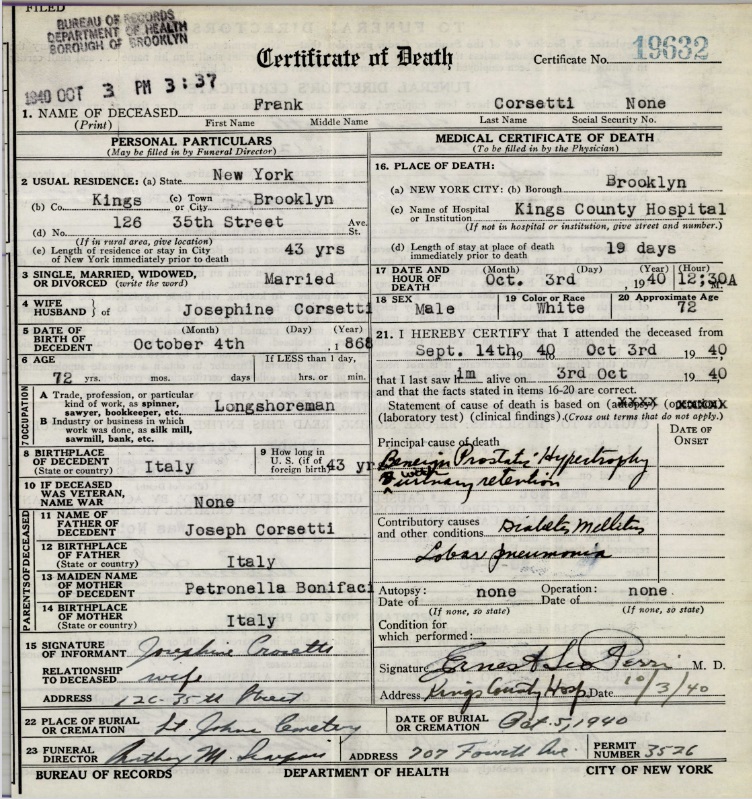 FILED
BUREAU OF RECORDS
DEPARTMENT OF HEALTH
BOROUGH OF BROOKLYN
1940 OCT 3 PM 3:37
Certificate of Death
Certificate No. 19632
1. NAME OF DECEASED Frank Corsetti None
(Print) First Name Middle Name Last Name Social Security No.
PERSONAL PARTICULARS
(May be filled in by Funeral Director)
2 USUAL RESIDENCE: (a) State New York
(b) Co. Kings (c) Town or City Brooklyn
(d) No. 126 35th Street Ave. St.
(If in rural area, give location)
(e) Length of residence or stay in City
of New York immediately prior to death 43 yrs
3 SINGLE, MARRIED, WIDOWED,
OR DIVORCED (write the word) Married
4 WIFE HUSBAND } of Josephine Corsetti
5 DATE OF BIRTH OF DECEDENT (Month) (Day) (Year)
October 4th, 1868
6 AGE If LESS than 1 day,
72 yrs. mos. days hrs. or min.
7 OCCUPATION
A Trade, profession, or particular
kind of work, as spinner,
sawyer, bookkeeper, etc. Longshoreman
B Industry or business in which
work was done, as silk mill,
sawmill, bank, etc.
8 BIRTHPLACE OF DECEDENT Italy
9 How long in U. S. (if of foreign birth) 43 yr
10 IF DECEASED WAS VETERAN, NAME WAR None
PARENTS OF DECEASED
11 NAME OF FATHER OF DECEDENT Joseph Corsetti
12 BIRTHPLACE OF FATHER (State or country) Italy
13 MAIDEN NAME OF MOTHER OF DECEDENT Petronella Bonifaci
14 BIRTHPLACE OF MOTHER (State or country) Italy
15 SIGNATURE OF INFORMANT Josephine Crosetti
RELATIONSHIP TO DECEASED wife
ADDRESS 126-35th Street
MEDICAL CERTIFICATE OF DEATH
(To be filled in by the Physician)
16. PLACE OF DEATH:
(a) NEW YORK CITY: (b) Borough Brooklyn
(c) Name of Hospital or Institution Kings County Hospital
(If not in hospital or institution, give street and number.)
(d) Length of stay at place of death
immediately prior to death 19 days
17 DATE AND HOUR OF DEATH (Month) (Day) (Year) (Hour)
Oct. 3rd, 1940 12:30A M.
18 SEX Male
19 Color or Race White
20 Approximate Age 72
21. I HEREBY CERTIFY that I attended the deceased from
Sept. 14th, 1940 to Oct 3rd 1940
that I last saw him alive on 3rd Oct 1940
and that the facts stated in items 16-20 are correct.
Statement of cause of death is based on (autopsy) (operation)
(laboratory test) (clinical findings). (Cross out terms that do not apply.)
DATE OF ONSET
Principal cause of death
Benign Prostatic Hypertrophy
with urinary retention
Contributory causes
and other conditions Diabetes Mellitus
Lobar pneumonia
Autopsy: Date of none Operation: Date of none.
(If none, so state) (If none, so state)
Condition for
which performed:
Signature Ernest Leo Perri M. D.
Address Kings County Hosp. Date 10/3/40
22 PLACE OF BURIAL OR CREMATION St Johns Cemetery
DATE OF BURIAL OR CREMATION Oct. 5, 1940
23 FUNERAL DIRECTOR M.
ADDRESS 707 Fourth Ave.
PERMIT NUMBER 3526
BUREAU OF RECORDS DEPARTMENT OF HEALTH CITY OF NEW YORK